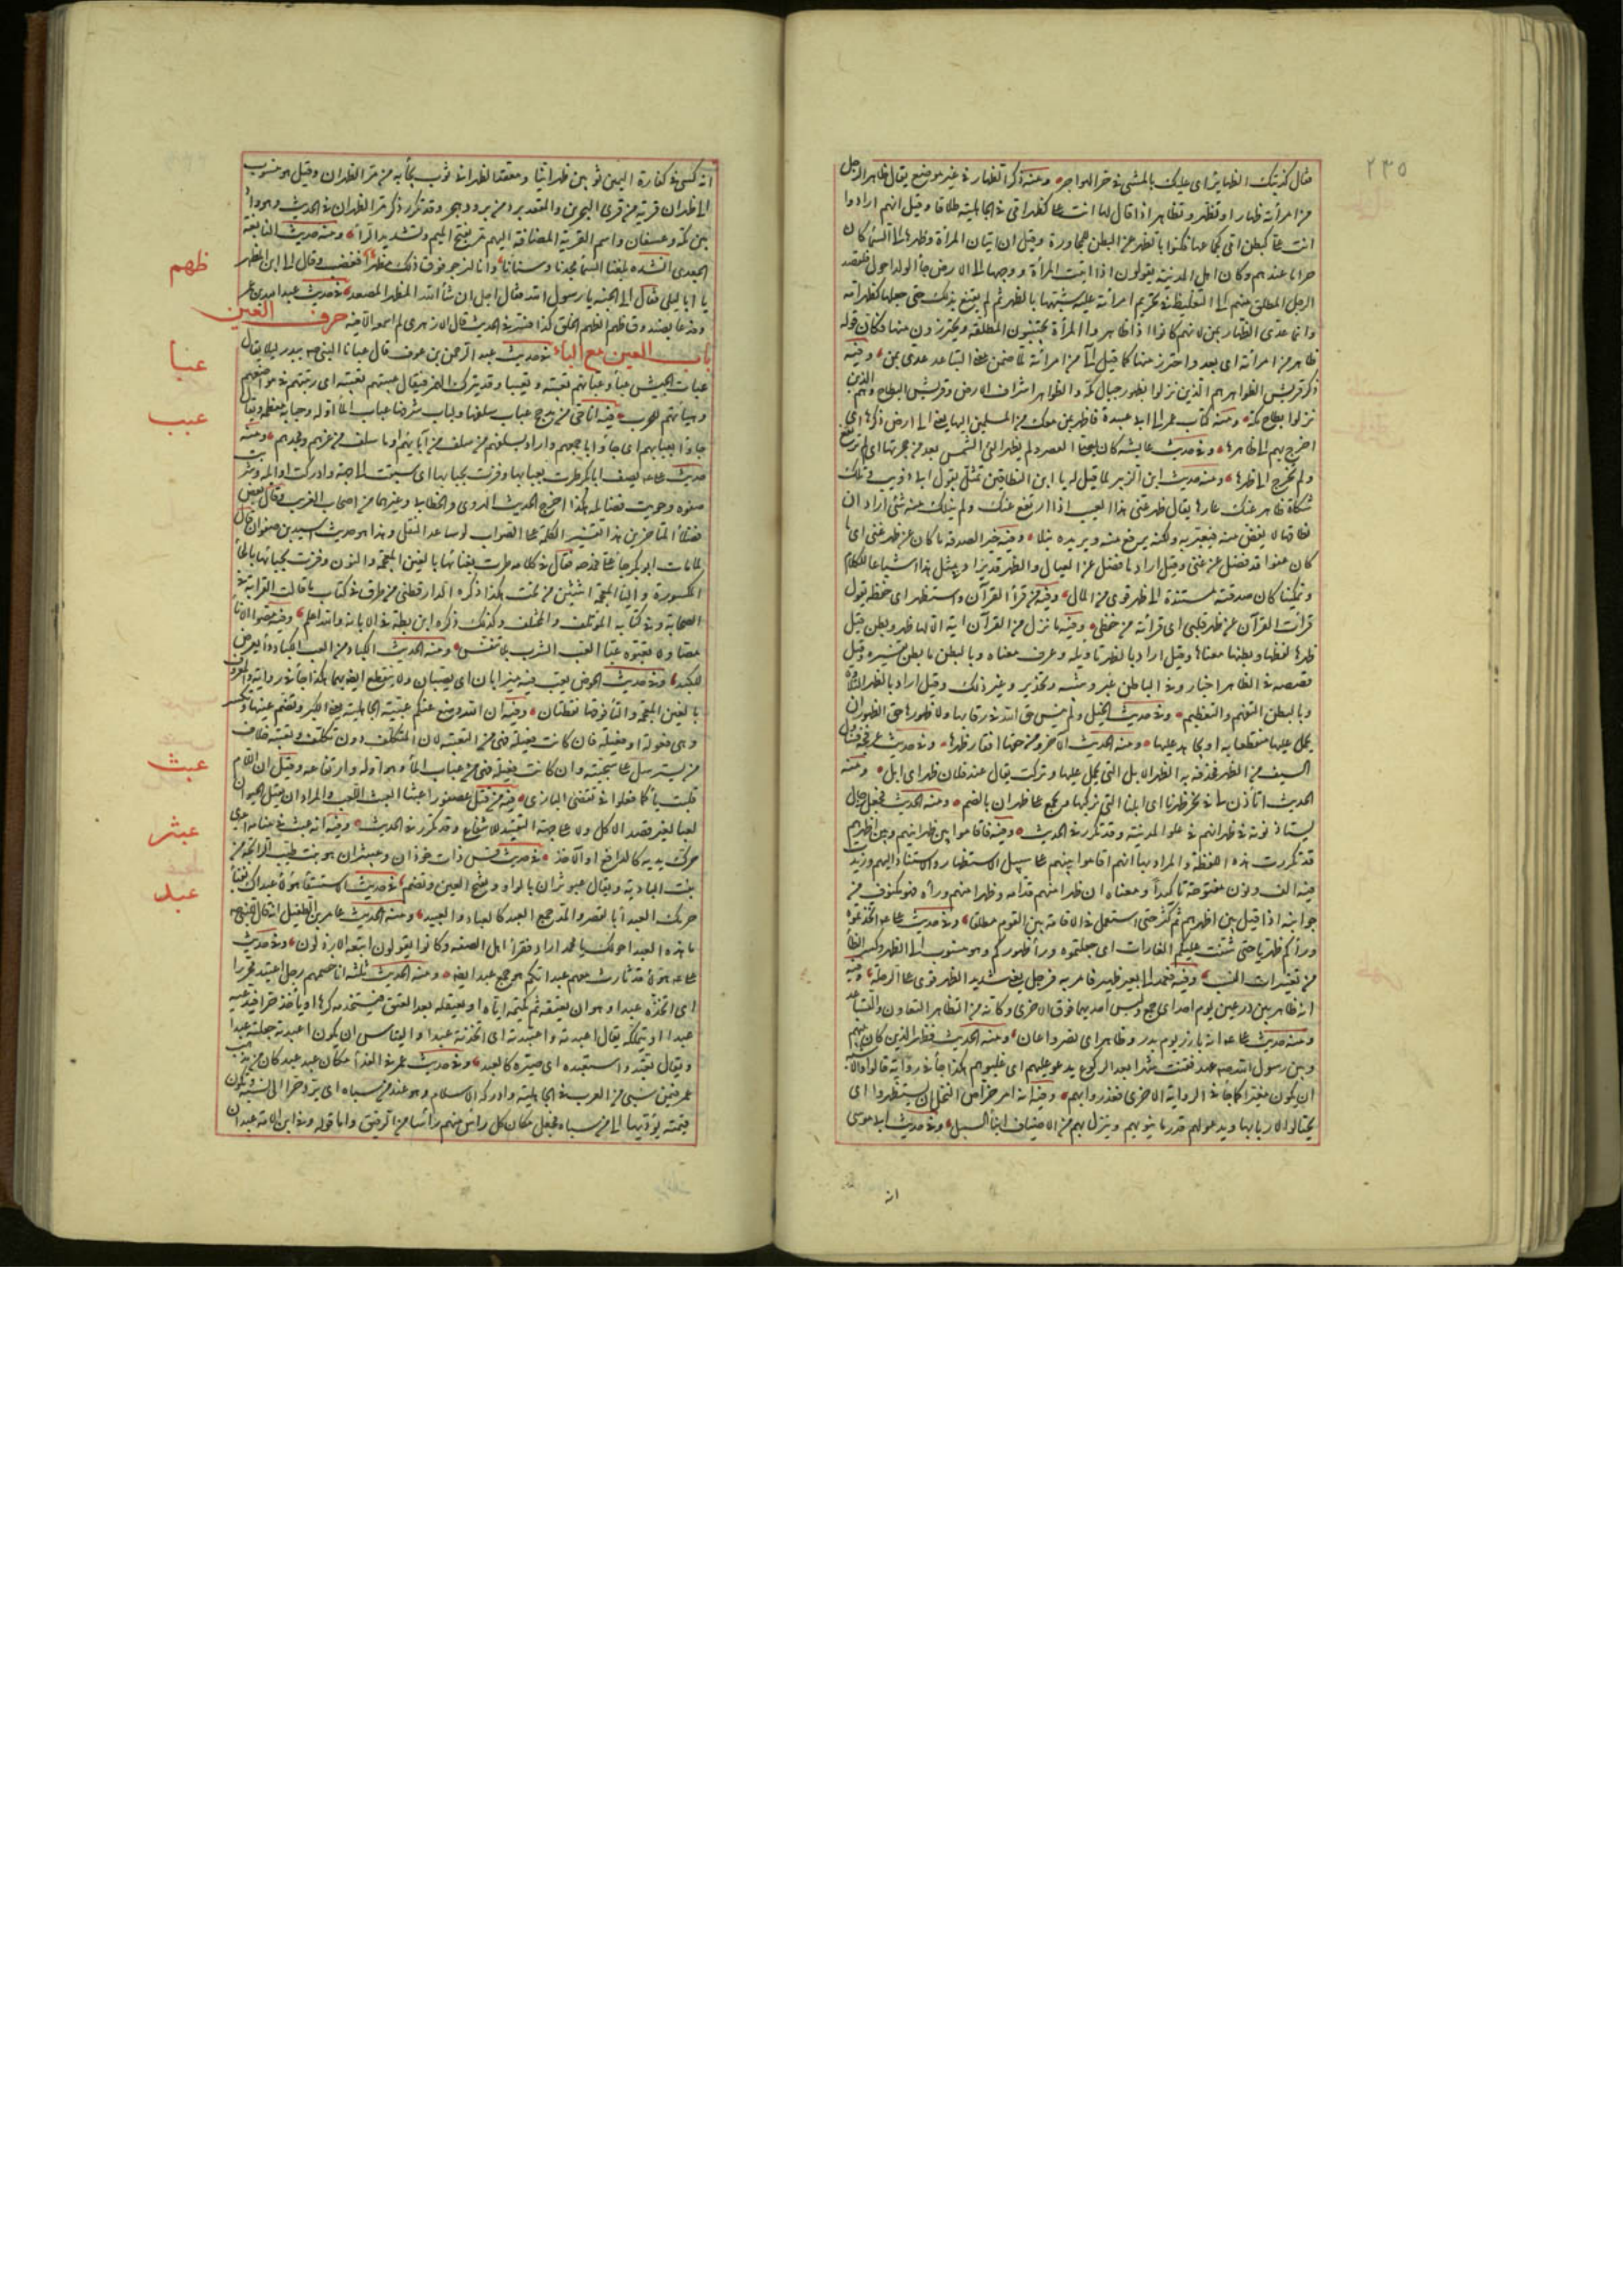 ٢٣٥
فقال كذبتك الظهاير اى عليك بالمشى فى حر الهواجر ومنه ذكر الظهار فى غير موضع يقال ظاهر الرجل
من امرأته ظهارا وتظهر وتظاهر اذا قال لها انت على كظهر امى فى الجاهلية طلاقا وقيل انهم ارادوا
انت على كبطن امى كجماعها فكنوا بالظهر عن البطن للمجاورة وقيل ان اتيان المرأة وظهرها الى السماء كان
حراما عندهم وكان اهل المدينة يقولون اذا اتيت المرأة ووجهها الى الارض جاء الولد احول فلقصد
الرجل المطلق منهم الى التغليظ فى تحريم امرأته عليه شبهها بالظهر ثم لم يقنع بذلك حتى جعلها كظهر امه
وانما عدى الظهار بمن لانهم كانوا اذا ظاهروا المرأة تجنبوا المطلقة ويحترزون منها فكان قوله
ظاهر من امرأته اى بعد واحترز منها كما قيل الى من امرأته لما ضمن معنى التباعد عدى بمن وفيه
ذكر قريش الظواهر هم الذين نزلوا بظهور جبال مكة والظواهر اشراف الارض وقريش البطاح وهم الذين
نزلوا بطاح مكة ومنه كتاب عمر الى ابى عبيدة فاظهر بمن معك من المسلمين اليها يعنى الى ارض ذكرها اى
اخرج بهم الى ظاهرها وفى حديث عايشة كان يصلى العصر ولم يظهر الفئ الشمس بعد من حجرتها اى لم ترتفع
ولم تخرج الى ظهرها ومنه حديث ابن الزبير لما قيل له يا ابن النطاقين تمثل بقول ابى ذويب وتلك
شكاة ظاهر عنك عارها يقال ظهر عنى هذا العيب اذا ارتفع عنك ولم ينلك منه شئ اراد ان
نطاقها لا يغض منه فيعير به ولكنه يرفع منه ويزيده نبلا وفيه خير الصدقة ما كان عن ظهر غنى اى ما
كان عفوا قد فضل عن غنى وقيل اراد ما فضل عن العيال والظهر قد يزاد فى مثل هذا اشباعا للكلام
وتمكينا كان صدقته مستندة الى ظهر قوى من المال وفيه من قرأ القرآن واستظهره اى حفظه يقول
قرأت القرآن عن ظهر قلبى اى قرأته من حفظى وفيه ما نزل من القرآن آية الا لها ظهر وبطن قيل
ظهرها لفظها وبطنها معناها وقيل اراد بالظهر ما ظهر تأويله وعرف معناه وبالبطن ما بطن تفسيره وقيل
قصصه فى الظاهر اخبار وفى الباطن عبر وتنبيه وتحذير وغير ذلك وقيل اراد بالظهر التلاوة
وبالبطن التفهم والتعظيم وفى حديث الخيل ولم ينس حق الله فى رقابها ولا ظهورها حق الظهور ان
يحمل عليها منقطعا به او يجاهد عليها ومنه الحديث الآخر ومن حقها افقار ظهرها وفى حديث عرفجة فتناول
السيف من الظهر فحذفه به الظهر الابل التى يحمل عليها وتركب يقال عند فلان ظهر اى ابل ومنه
الحديث اتأذن لنا فى نحر ظهرنا اى ابلنا التى نركبها ويجمع على ظهران بالضم ومنه الحديث فجعل رجال
يستأذنونه فى ظهرانهم فى علو المدينة وقد تكرر فى الحديث وفيه فاقاموا بين ظهرانيهم وبين اظهرهم
قد تكررت هذه اللفظة والمراد بها انهم اقاموا بينهم على سبيل الاستظهار والاستناد اليهم وزيدت
فيه الف ونون مفتوحة تأكيدا ومعناه ان ظهرا منهم قدامه وظهرا منهم وراءه فهو مكنوف من
جوانبه اذا قيل بين اظهرهم ثم كثر حتى استعمل فى الاقامة بين القوم مطلقا وفى حديث على اتخذتموه
وراءكم ظهريا حتى شنت عليكم الغارات اى جعلتموه وراء ظهوركم وهو منسوب الى الظهر وكسر الظاء
من تغييرات النسب وفيه فعمد الى بعير ظهير فامر به فرحل يعنى شديد الظهر قوى على الرحلة وفيه
انه ظاهر بين درعين يوم احد اى جمع ولبس احديهما فوق الاخرى وكانه من التظاهر التعاون والتساعد
ومنه حديث على انه بارز يوم بدر وظاهر اى نصر واعان ومنه الحديث فظهر الذين كان بينهم
وبين رسول الله عهد فقنت شهرا بعد الركوع يدعو عليهم اى غلبوهم هكذا جاء فى رواية قالوا والاشبه
ان يكون مغيرا كما جاء فى الرواية الاخرى فغدروا بهم وفيه انه امر خراص النخل ان يستظهروا اى
يحتاطوا لاربابها ويدعوا لهم قدر ما ينوبهم وينزل بهم من الاضياف ابناء السبيل وفى حديث ابى موسى
انه
انه كسى فى كفارة اليمين ثوبين ظهرانيا ومعقدا الظهرانى ثوب يجاء به من مر الظهران وقيل هو منسوب
الى ظهران قرية من قرى البحرين والمعقد برد من برود هجر وقد تكرر ذكر مر الظهران فى الحديث وهو واد
بين مكة وعسفان واسم القرية المضافة اليه مر بفتح الميم وتشديد الراء ومنه حديث النابغة
الجعدى انشده بلغنا السماء مجدنا وسناؤنا وانا لنرجو فوق ذلك مظهرا فغضب وقال الى اين المظهر
يا ابا ليلى فقال الى الجنة يا رسول الله فقال اجل ان شاء الله المظهر المصعد فى حديث عبد الله بن عمر
ظهم
ودعا بصندوق ظهم الظهم الخلق كذا فسر فى الحديث قال الازهرى لم اسمعه الا فيه حرف العين
باب العين مع الباء فى حديث عبد الرحمن بن عوف قال عبانا النبى ببدر ليلا يقال
عبا
عبأت الجيش عبأ وعبأتهم تعبية وتعبيا وقد يترك الهمز فيقال عبيتهم تعبية اى رتبتهم فى مواضعهم
وهيأتهم للحرب فيه انا حى من مذحج عباب سلفها ولباب شرفها عباب الماء اوله وحبابه معظمه ويقال
عبب
جاؤا بعبابهم اى جاؤا باجمعهم واراد بسلفهم من سلف من آبائهم او ما سلف من عزهم ومجدهم ومنه
حديث على يصف ابا بكر طرت بعبابها وفزت بحبابها اى سبقت الى جمة الاسلام وادركت اوائله وشربت
صفوه وحويت فضائله هكذا اخرج الحديث الهروى والخطابى وغيرهما من اصحاب الغريب وقال بعض
فضلاء المتأخرين هذا تفسير الكلمة على الصواب لو ساعد النقل وهذا هو حديث اسيد بن صفوان قال
لما مات ابو بكر جاء على فمدحه فقال فى كلامه طرت بغنائها بالغين المعجمة والنون وفزت بحيائها بالحاء
المكسورة والياء المعجمة اثنتين من تحت هكذا ذكره الدارقطنى من طرق فى كتاب ما قالت القرابة فى
الصحابة وفى كتابه المؤتلف والمختلف وكذلك ذكره ابن بطة فى الابانة والله اعلم وفيه مصوا الماء
مصا ولا تعبوه عبا العب الشرب بلا تنفس ومنه الحديث الكباد من العب الكباد داء يعرض
للكبد وفى حديث الحوض يعب فيه ميزابان اى يصبان ولا ينقطع انصبابهما هكذا جاء فى رواية والمعروف
بالغين المعجمة والتاء فوقها نقطتان وفيه ان الله وضع عنكم عبية الجاهلية يعنى الكبر وتضم عينها وتكسر
وهى فعولة او فعيلة فان كانت فعولة فهى من التعبية لان المتكبر ذو تكلف وتعبية خلاف
من يسترسل على سجيته وان كانت فعيلة فهى من عباب الماء وهو اوله وارتفاعه وقيل ان اللام
قلبت ياء كما فعلوا فى تقضى البازى فيه من قتل عصفورا عبثا العبث اللعب والمراد ان يقتل الحيوان
عبث
لعبا لغير قصد الاكل ولا على جهة التصيد للانتفاع وقد تكرر فى الحديث وفيه انه عبث فى منامه اى
حرك يديه كالدافع او الآخذ فى حديث قس ذات حوذان وعبيثران هو نبت طيب الرائحة من
عبثر
نبت البادية ويقال عبوثران بالواو وبفتح العين وتضم فى حديث الاستسقاء هؤلاء عبداك بفناء
عبد
حرمك العبداء بالقصر والمد جمع العبد كالعباد والعبيد ومنه الحديث عامر بن الطفيل انه قال للنبى
ما هذه العبدا حولك يا محمد اراد فقراء اهل الصفة وكانوا يقولون اتبعه الارذلون وفى حديث
على هؤلاء قد ثارت معهم عبدانكم هو جمع عبد ايضا ومنه الحديث ثلثة انا خصمهم رجل اعتبد محررا
اى اتخذه عبدا وهو ان يعتقه ثم يكتمه اياه او يعتقله بعد العتق فيستخدمه كرها او يأخذ حرا فيدعيه
عبدا او يتملكه يقال اعبدته واعتبدته اى اتخذته عبدا والقياس ان يكون اعبدته جعلته عبدا
ويقال تعبده واستعبده اى صيره كالعبد وفى حديث عمر فى الفداء مكان عبد عبد كان من مذهب
عمر فيمن سبى من العرب فى الجاهلية وادركه الاسلام وهو عند من سباه ان يرد حرا الى نسبه وتكون
قيمته يؤديها الى من سباه فجعل مكان كل رأس منهم رأسا من الرقيق واما قوله وفى ابن الامة عبدان